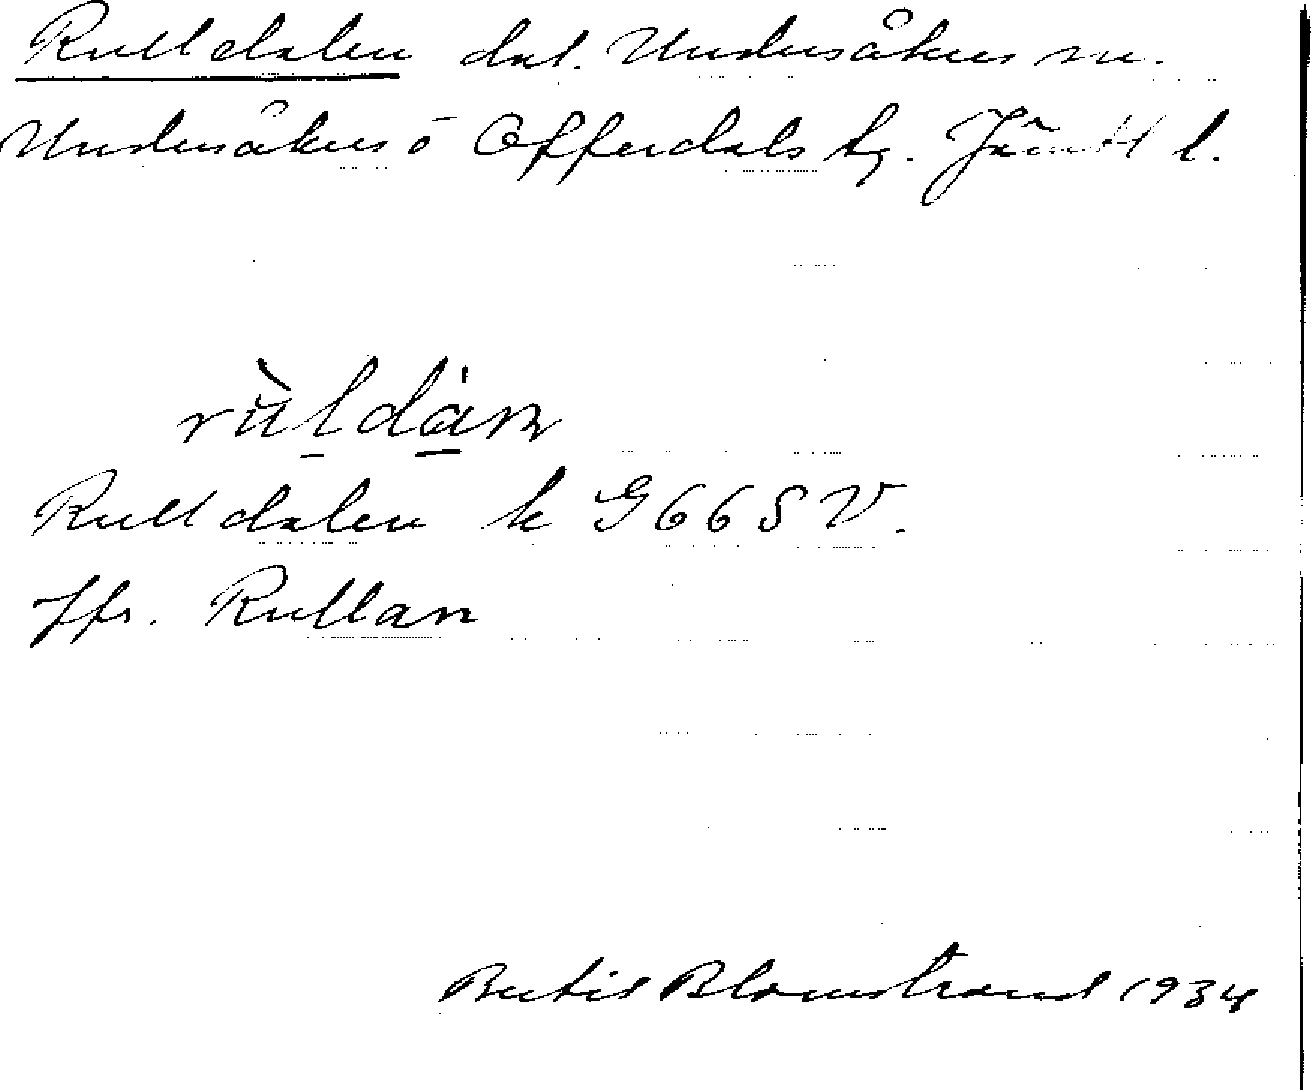 Rulldalen dal. Undersåkers sn.
Undersåkers o Offerdals tg. Jämtl l.
rùldàn
Rulldalen k G66SV.
Jfr. Rullan
Bertil Blomstrand 1934